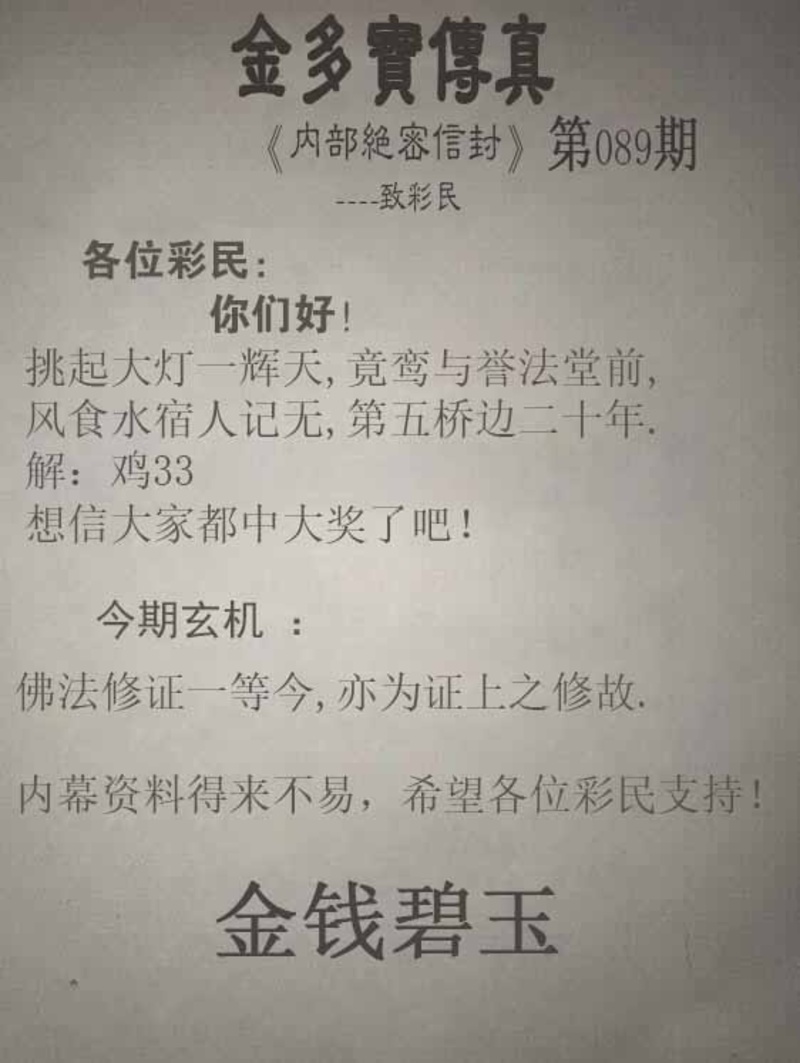 金多寳傳真
《内部絶密信封》第089期
----致彩民
各位彩民:
你们好!
挑起大灯一辉天,竟鸾与誉法堂前,
风食水宿人记无,第五桥边二十年.
解：鸡33
想信大家都中大奖了吧!
今期玄机 ：
佛法修证一等今,亦为证上之修故.
内幕资料得来不易，希望各位彩民支持!
金钱碧玉